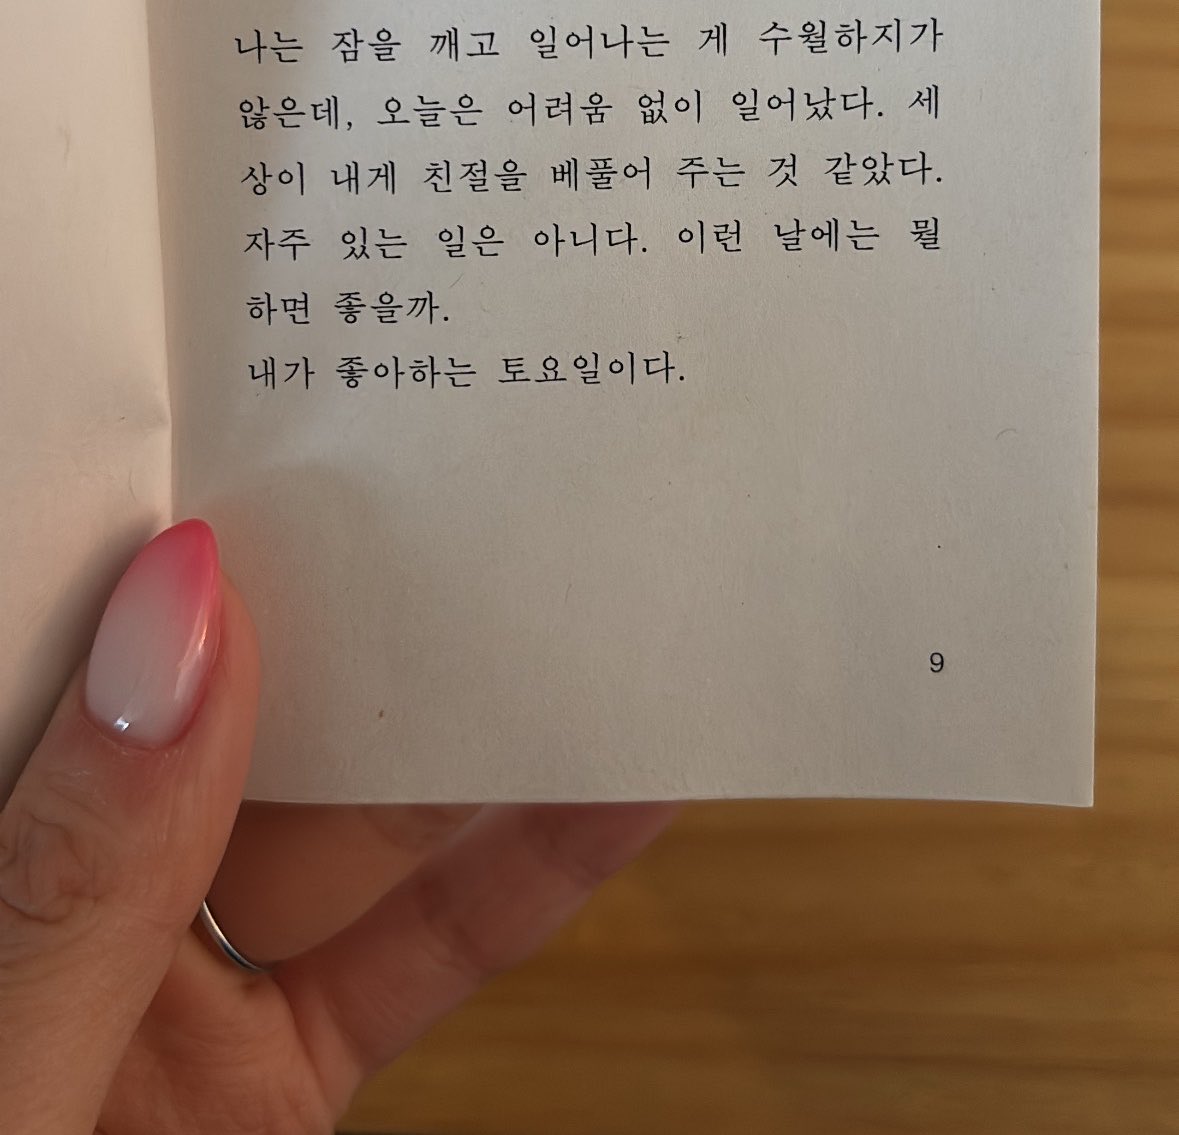 나는 잠을 깨고 일어나는 게 수월하지가
않은데, 오늘은 어려움 없이 일어났다. 세
상이 내게 친절을 베풀어 주는 것 같았다.
자주 있는 일은 아니다. 이런 날에는 뭘
하면 좋을까.
내가 좋아하는 토요일이다.
9